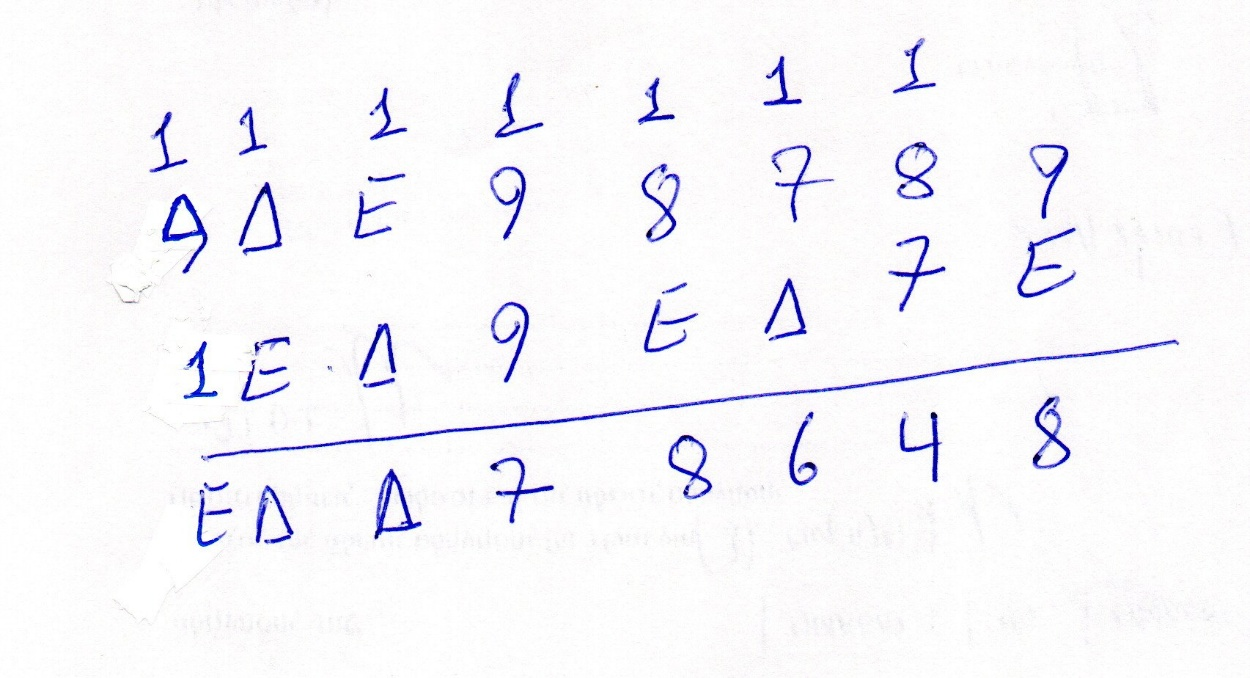 1 1 1 1 1 1 1
Δ Δ E 9 8 7 8 9
1 E Δ 9 E Δ 7 E
E Δ Δ 7 8 6 4 8